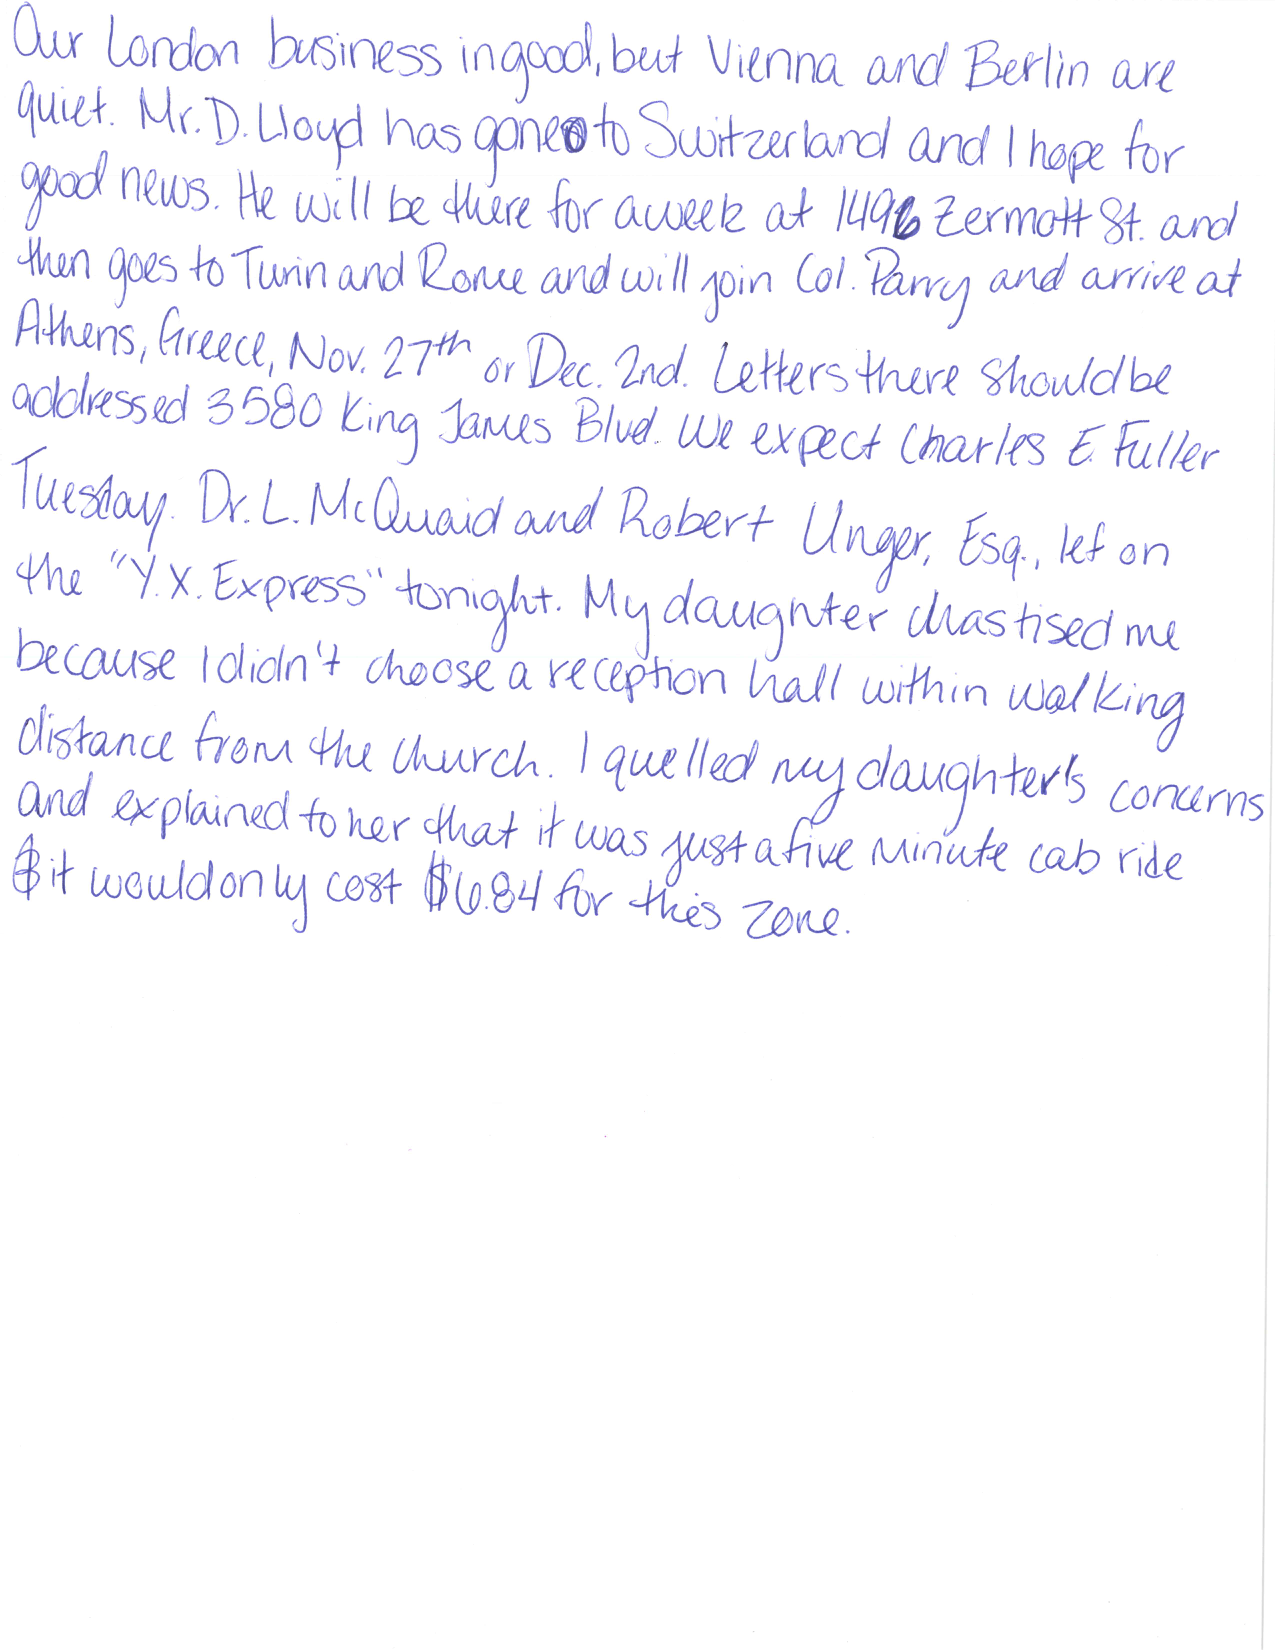 Our London business in good, but Vienna and Berlin are
quiet. Mr. D. Lloyd has gone to Switzerland and I hope for
good news. He will be there for a week at 1496 Zermott St. and
then goes to Turin and Rome and will join Col. Parry and arrive at
Athens, Greece, Nov. 27th or Dec. 2nd. Letters there should be
addressed 3580 King James Blvd. We expect Charles E. Fuller
Tuesday. Dr. L. McQuaid and Robert Unger, Esq., lef on
the "Y.X. Express" tonight. My daugnter chastised me
because I didn't choose a reception hall within walking
distance from the church. I quelled my daughter's concerns
and explained to her that it was just a five minute cab ride
& it would only cost $6.84 for this zone.